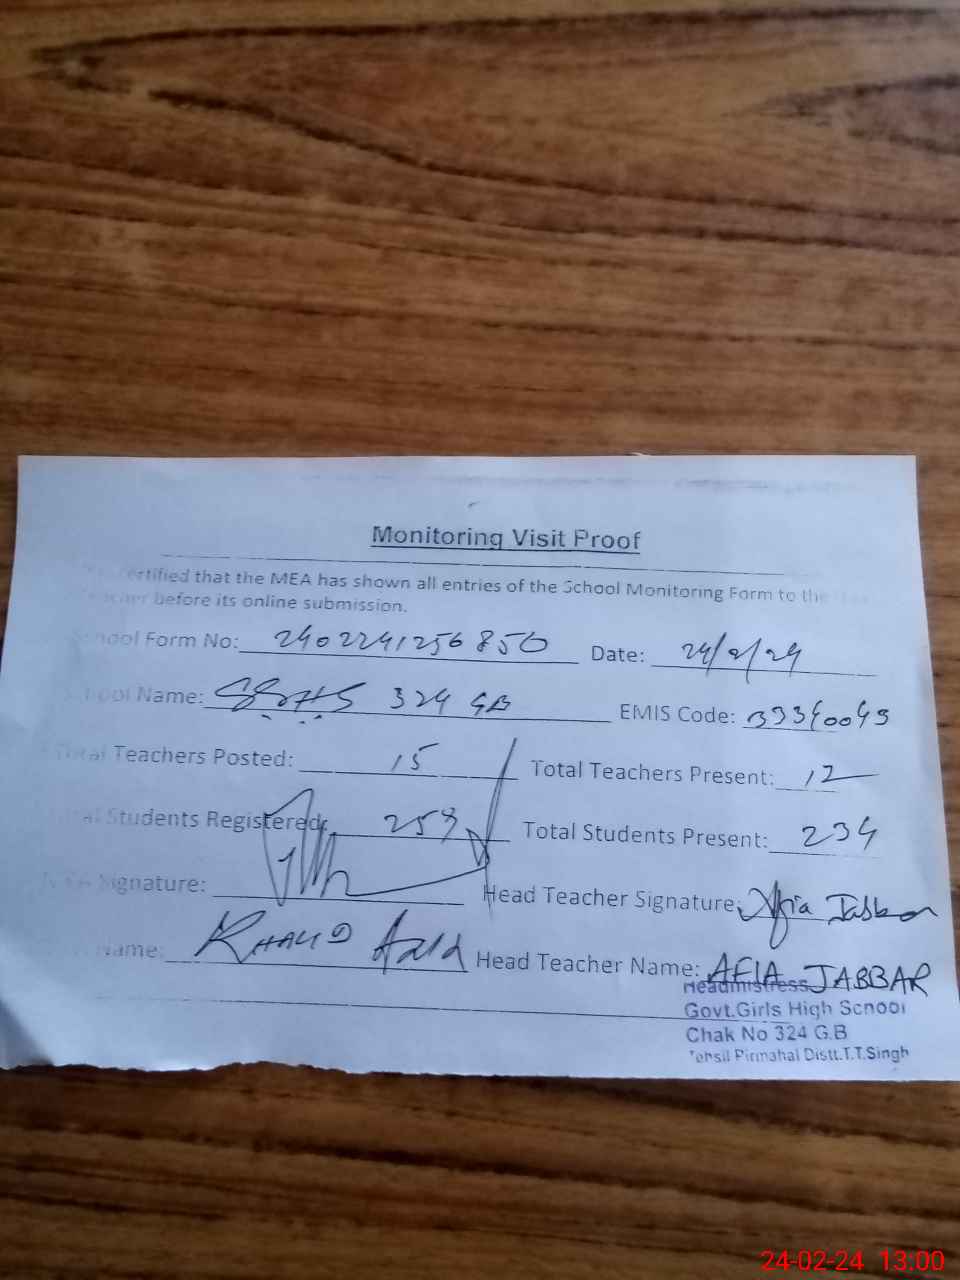 Monitoring Visit Proof
certified that the MEA has shown all entries of the School Monitoring Form to the
before its online submission.
School Form No: 2402241256850 Date: 24/2/24
School Name: GGHS 324 GB EMIS Code: 33340049
Total Teachers Posted: 15 Total Teachers Present: 12
Total Students Registered: 259 Total Students Present: 234
MEA Signature: Head Teacher Signature: Afia Jabbar
Name: KHALID Head Teacher Name: AFIA JABBAR
Headmistress
Govt.Girls High School
Chak No 324 G.B
Tehsil Pirmahal Distt.T.T.Singh
24-02-24 13:00